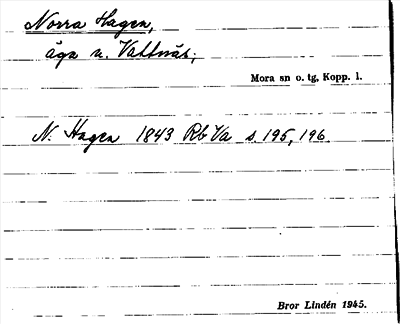 Norra Hagen,
äga n. Vattnäs;
Mora sn o. tg, Kopp. l.
N. Hagen 1843 Rb Va s. 195, 196
Bror Lindén 1945.